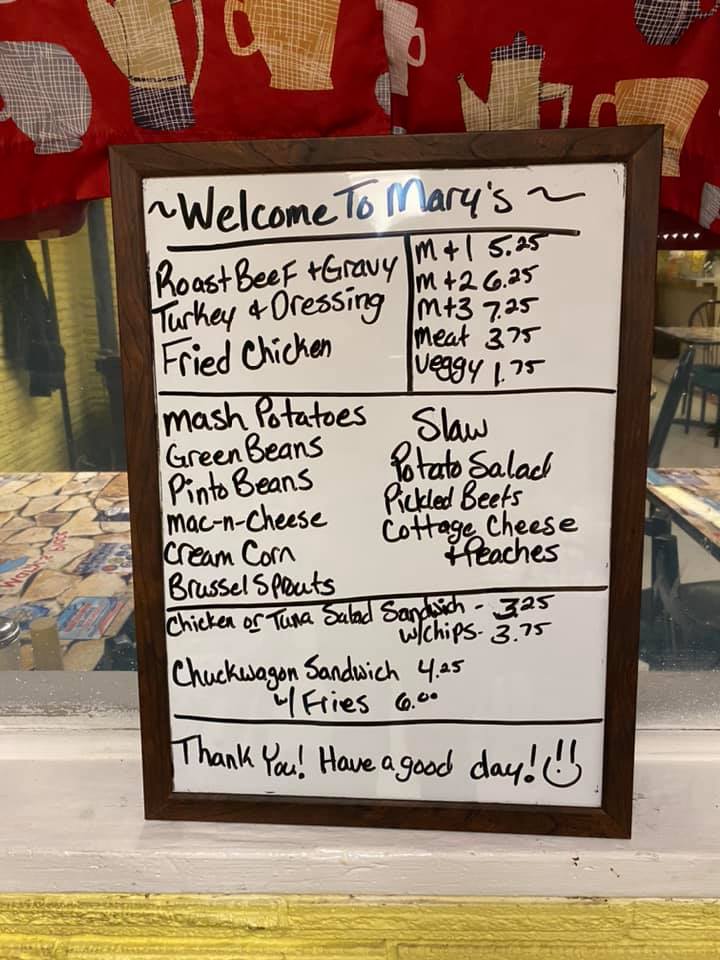 ~Welcome To Mary's~
Roast Beef + Gravy
Turkey & Dressing
Fried Chicken
M+1 5.25
M+2 6.25
M+3 7.25
Meat 3.75
Veggy 1.75
Mash Potatoes
Green Beans
Pinto Beans
Mac-n-Cheese
Cream Corn
Brussel Sprouts
Slaw
Potato Salad
Pickled Beets
Cottage Cheese
+Peaches
Chicken or Tuna Salad Sandwich - 3.25
w/chips- 3.75
Chuckwagon Sandwich 4.25
w/ Fries 6.00
Thank You! Have a good day!!